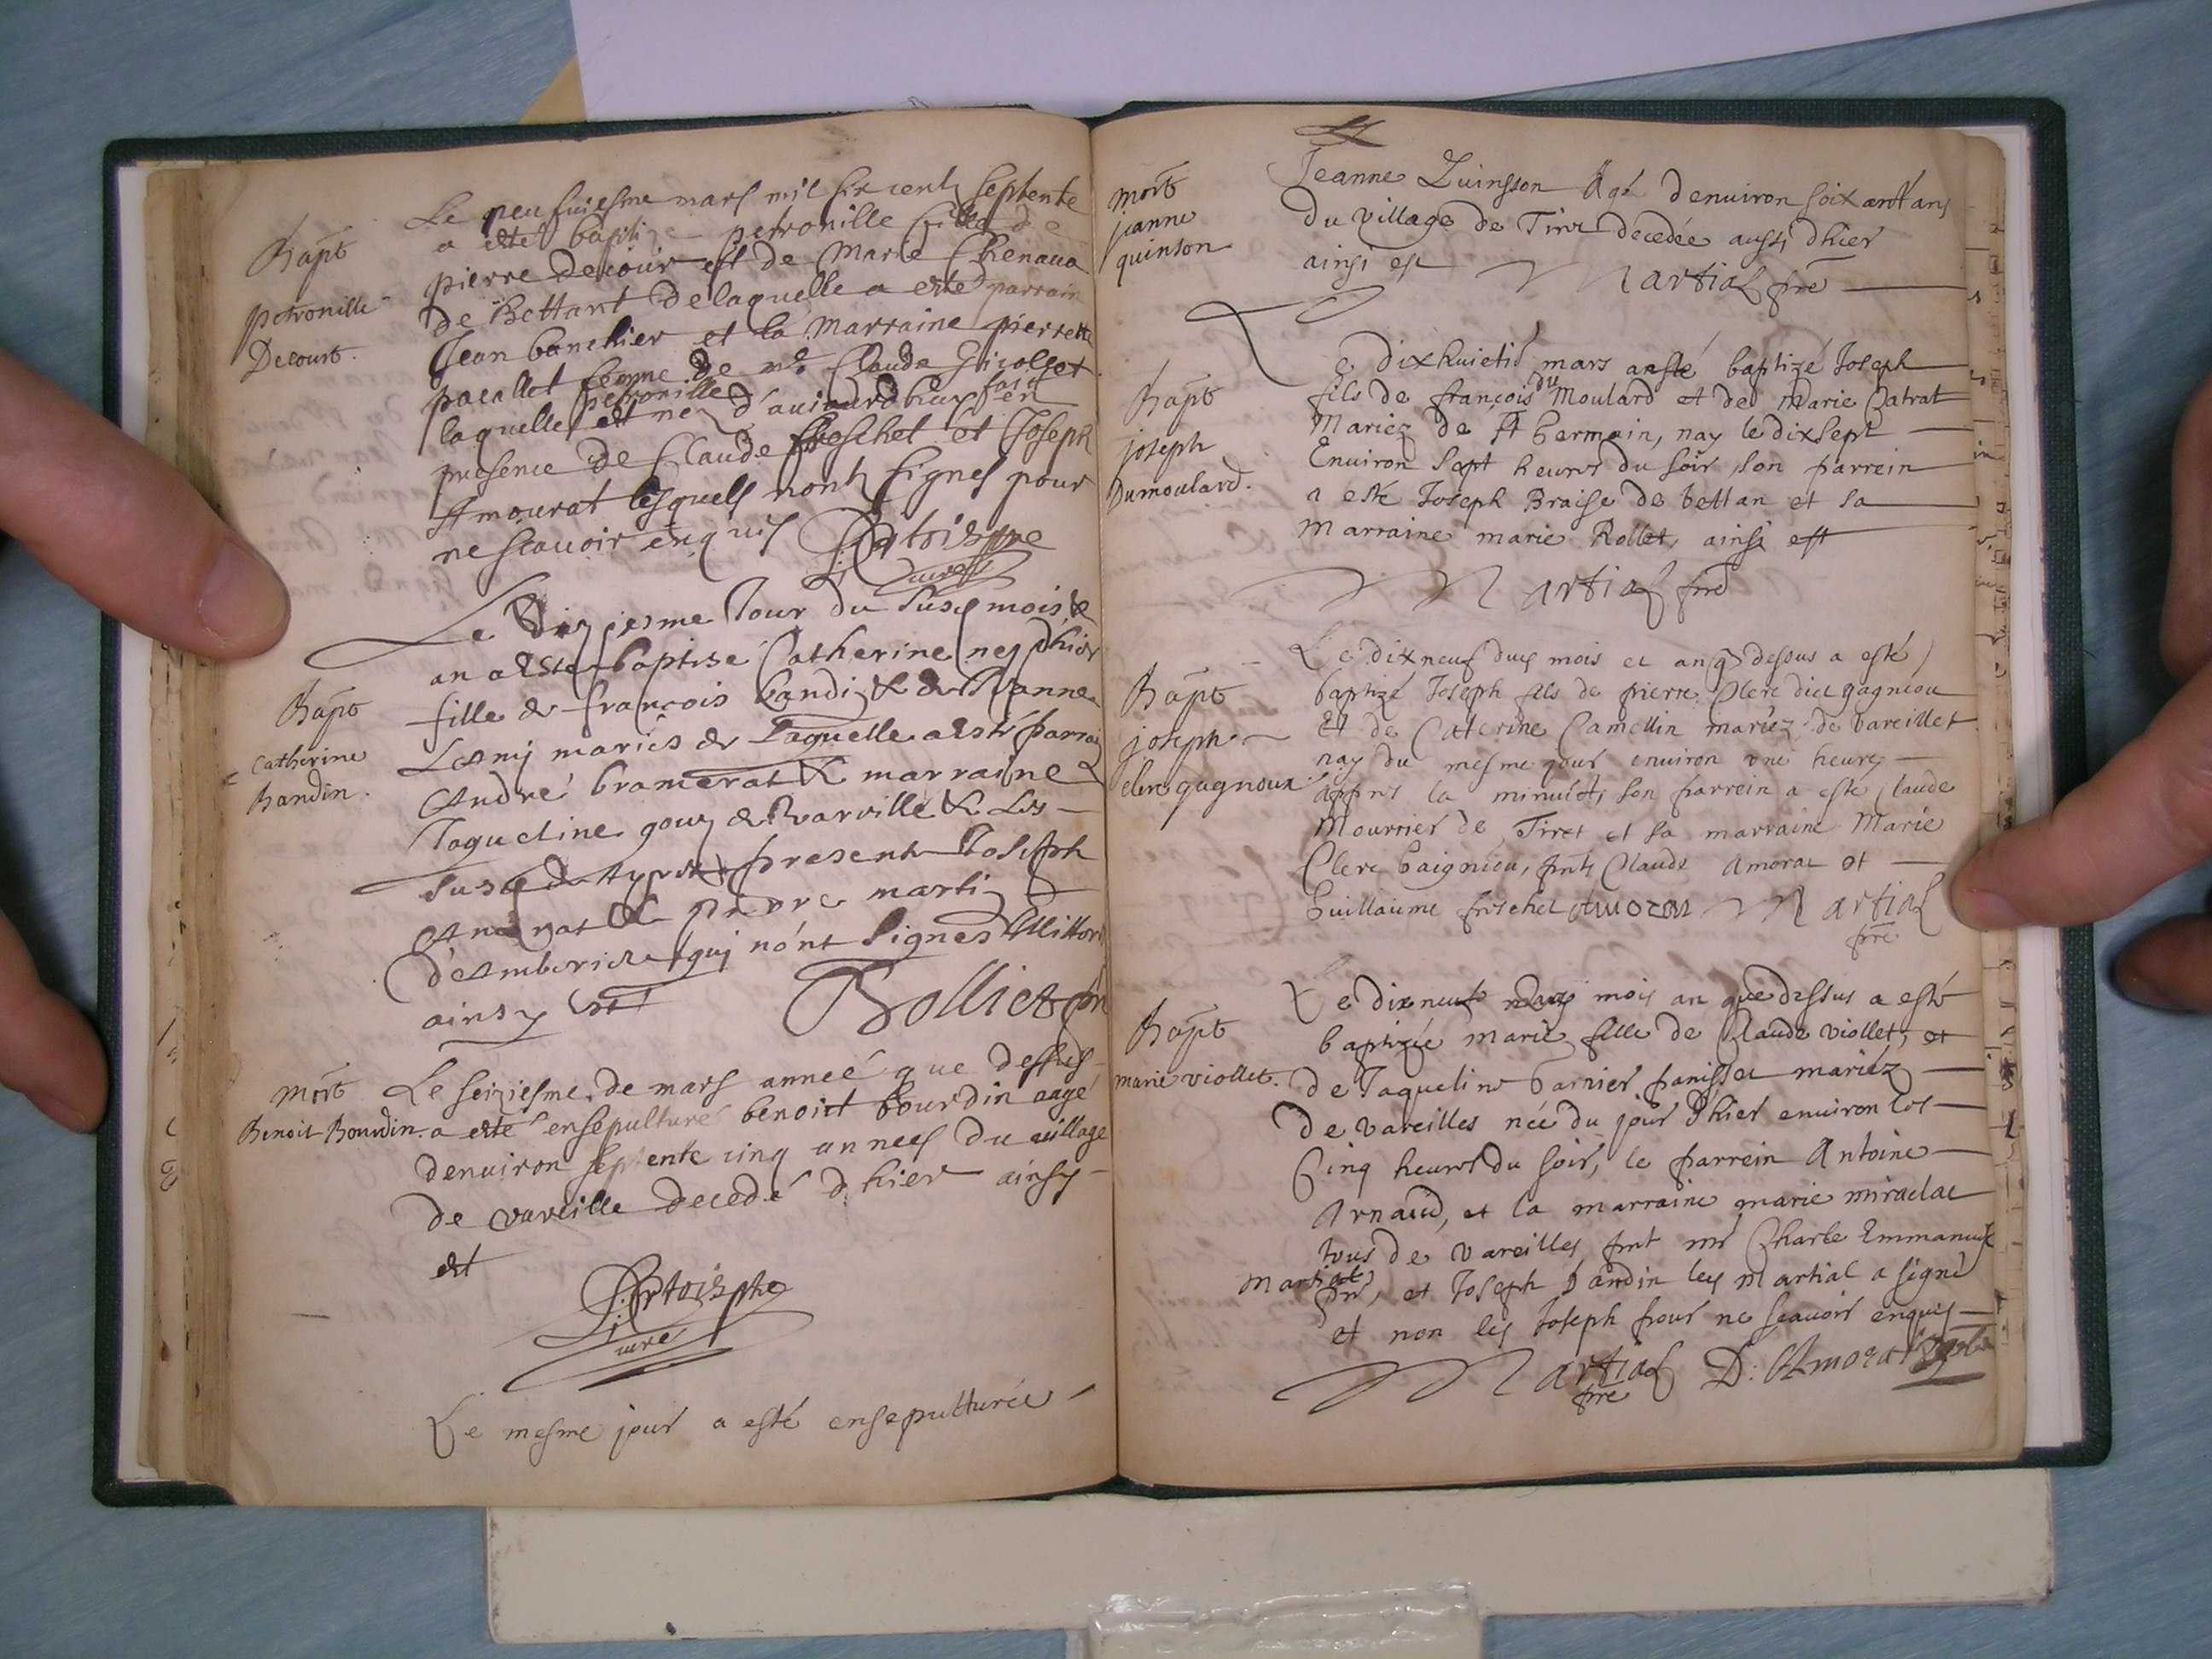 Bapt
petronille
Decourt.
Le neufuiesme mars mil six cents septente
a esté baptize petronille fille de
pierre decour et de Marie Chenaua
de Bettant de laquelle a esté parrain
Jean banchier et la marraine pierrette
pacallet femme de mr Claude Gricollet
laquelle petronille est nez d'aujourdhuy faict en
presence de Claude froschet et Joseph
Amourat lesquels nont signes pour
ne scauoir enquis
cure
Bapt
Catherine
Bandin.
Le diziesme Jour du susd mois &
an a Esté baptise Catherine nez dhier
fille de françois bandin & de Jeanne
mariés de Laquelle a Esté parrain
André bramerat & marraine
Jaqueline gouz de Varville & Les
susd présent Joseph
Amorat & pierre martin
d'Amberieu quj nónt signes
ainsy Est Bolliet pr
mort
Benoit Bourdin.
Le seiziesme de mars anneé que dessus
a esté ensepulturé benoict bourdin aagé
denuiron septente cinq annees du village
de vareille decedé d hier ainsy
est
cure
Le mesme jour a esté ensepulturée
mort
jeanne
quinson
Jeanne Quinsson Agé denuiron soixant ans
du village de Tiret decedée aussi dhier
ainsi est Martial pre
Bapt
joseph
Dumoulard.
Le dixhuictie mars a esté baptizé Joseph
fils de françois du Moulard et de Marie Catrat
Mariez de St Germain, nay le dixsept
Enuiron sept heures du soir son parrein
a esté Joseph Braise de bettan et sa
marraine marie Rollet, ainsi est
Martial pre
Bapt
joseph
clerc gagnoux
Le dixneuf dud mois et an q dessus a esté
baptizé Joseph fils de pierre Clerc dict gagniou
Et de Caterine Camellin mariez de Vareilles
nay du mesme jour enuiron vne heure
appres la minuict, son parrein a esté Claude
Mourrier de Tiret et sa marraine Marie
Clerc Gaigniou, pnts Claude Amorat et
Guillaume frischet Amorat Martial
pre
Bapt
marie viollet.
Le dixneuf mars mois an que dessus a esté
baptizée marie fille de Claude viollet, et
de Jaqueline Garnier panisset mariéz
De vareilles née du jour d'hier enuiron les
Cinq heures du soir, le parrein Antoine
Arnaud, et la marraine marie miraclat
tous de vareilles pnt mr Charle Emmanuel
Martial pre, et Joseph Bandin led Martial a signé
et non led Joseph pour ne scauoir enquis
Martial D: Amorat
pre